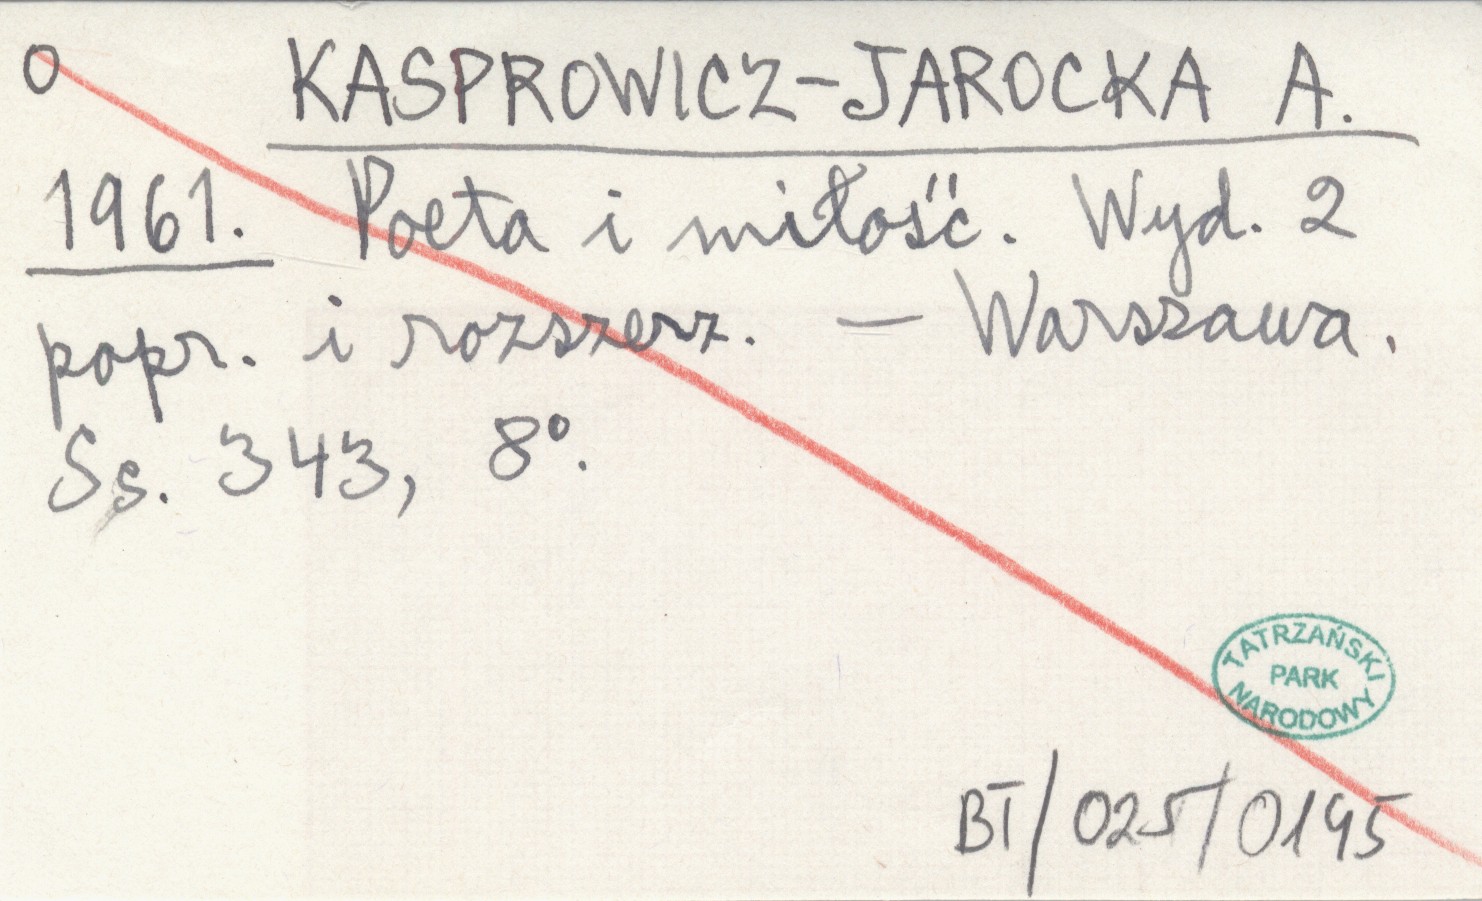 O KASPROWICZ-JAROCKA A.
1961. Poeta i miłość. Wyd. 2
popr. i rozszerz. — Warszawa.
Ss. 343, 8°.
TATRZAŃSKI
PARK
NARODOWY
BT/025/0195